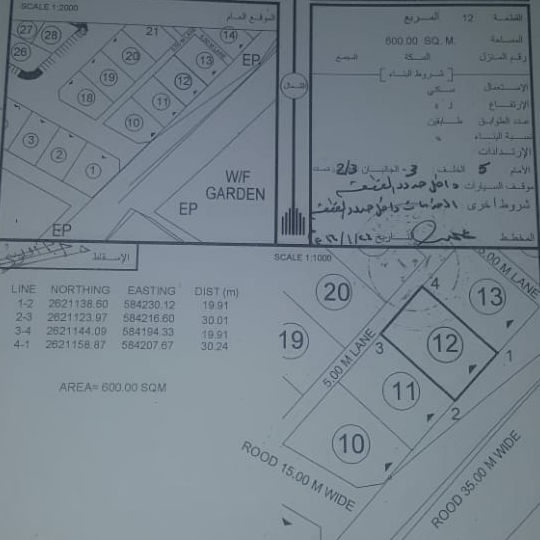 SCALE 1:2000
الموقع العام
27
28
26
21
20
19
18
14
13
12
11
10
3
2
1
EP
W/F
GARDEN
EP
EP
الشمال
القطعة 12 المربع
المساحة 600.00 SQ. M.
رقم المنزل السكة المجمع
شروط البناء
الاستعمال سكني
الارتفاع
عدد الطوابق طابقين
نسبة البناء
الارتدادات
الأمام: 5 الخلف 3 الجانبان 2/3
موقف السيارات داخل حدود القطعة
شروط أخرى
المخطط التاريخ
الإسقاط
LINE NORTHING EASTING DIST (m)
1-2 2621138.60 584230.12 19.91
2-3 2621123.97 584216.60 30.01
3-4 2621144.09 584194.33 19.91
4-1 2621158.87 584207.67 30.24
AREA= 600.00 SQM
SCALE 1:1000
5.00 M LANE
20
4
13
19
3
12
1
5.00 M LANE
11
2
10
ROOD 15.00 M WIDE
ROOD 35.00 M WIDE